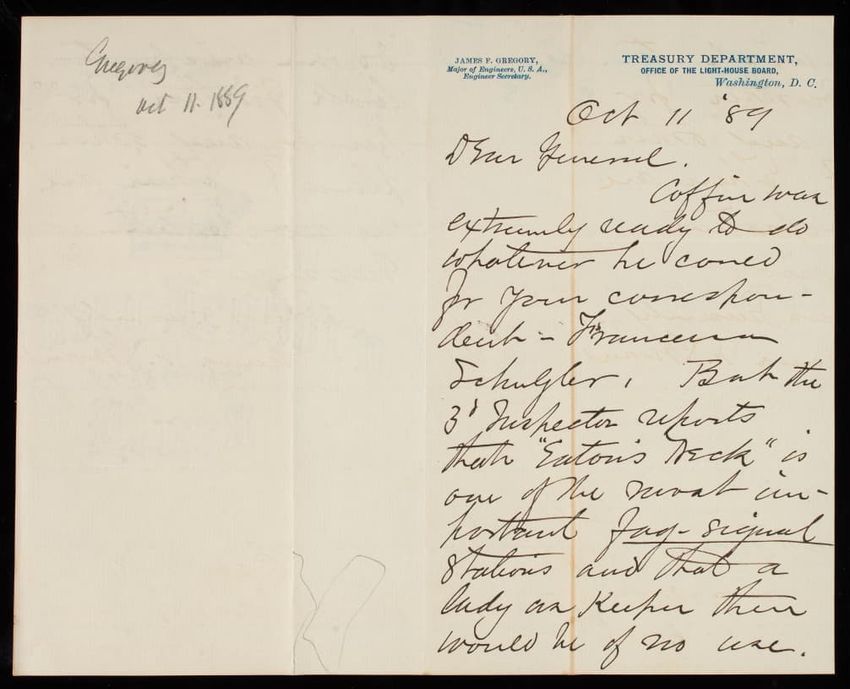 Gregory
Oct 11. 1889
JAMES F. GREGORY,
Major of Engineers, U. S. A.,
Engineer Secretary.
TREASURY DEPARTMENT,
OFFICE OF THE LIGHT-HOUSE BOARD,
Washington, D. C.
Oct 11 '89
Dear General.
Coffin was
extremely ready to do
whatever he could
for your correspon-
dent - Francesca
Schuyler. But the
3d Inspector reports
that "Eaton's Neck" is
one of the most im-
portant fog-signal
stations and that a
lady as Keeper there
would be of no use.